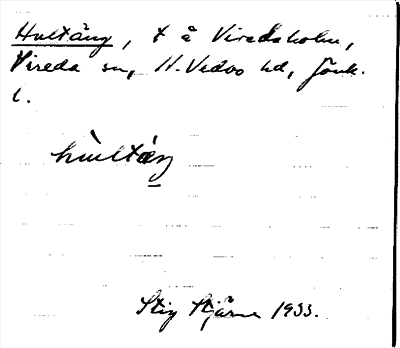 Hultäng, t å Viredaholm,
Vireda sn, N. Vedbo hd, Jönk.
l.
hùltäŋ
Stig Stjärne 1933.